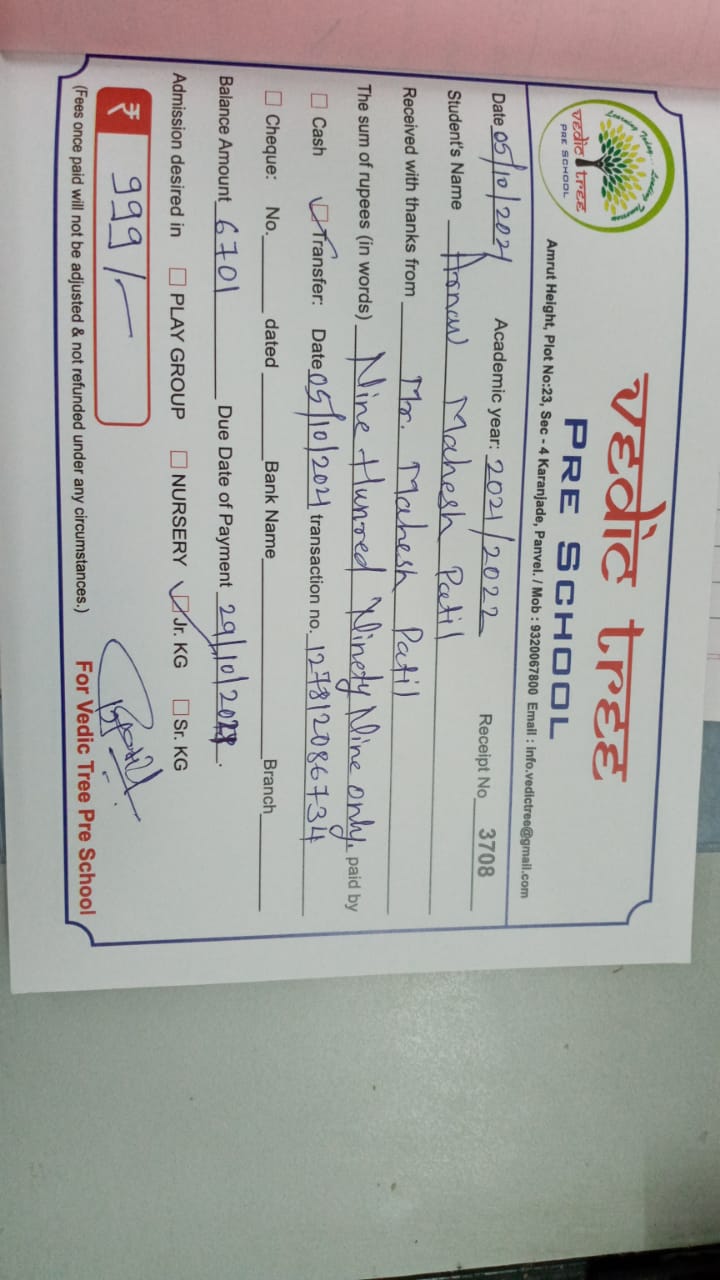 Learning Today... Leading Tomorrow
vedic tree
PRE SCHOOL
vedic tree
PRE SCHOOL
Amrut Height, Plot No:23, Sec - 4 Karanjade, Panvel. / Mob : 9320067800 Email : info.vedictree@gmail.com
Date 05/10/2021 Academic year: 2021/2022 Receipt No 3708
Student's Name Arnav Mahesh Patil
Received with thanks from Mr. Mahesh Patil
The sum of rupees (in words) Nine Hunred Ninety Nine only. paid by
☐ Cash ☑ Transfer: Date 05/10/2021 transaction no. 127812086734
☐ Cheque: No. dated Bank Name Branch
Balance Amount 6701 Due Date of Payment 29/10/
Admission desired in ☐ PLAY GROUP ☐ NURSERY ☑ Jr. KG ☐ Sr. KG
₹ 999/-
(Fees once paid will not be adjusted & not refunded under any circumstances.)
For Vedic Tree Pre School